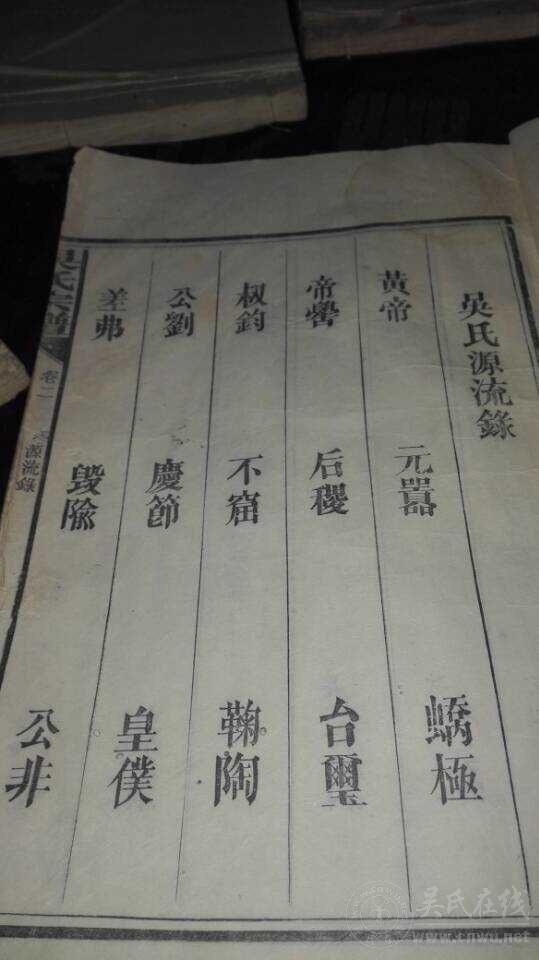 吳氏源流錄
黃帝 元囂 蟜極
帝嚳 后稷 台璽
叔鈞 不窋 鞠陶
公劉 慶節 皇僕
差弗 毀隃 公非
吳氏宗譜 卷二 源流錄
吴氏在线
www.cnwu.net